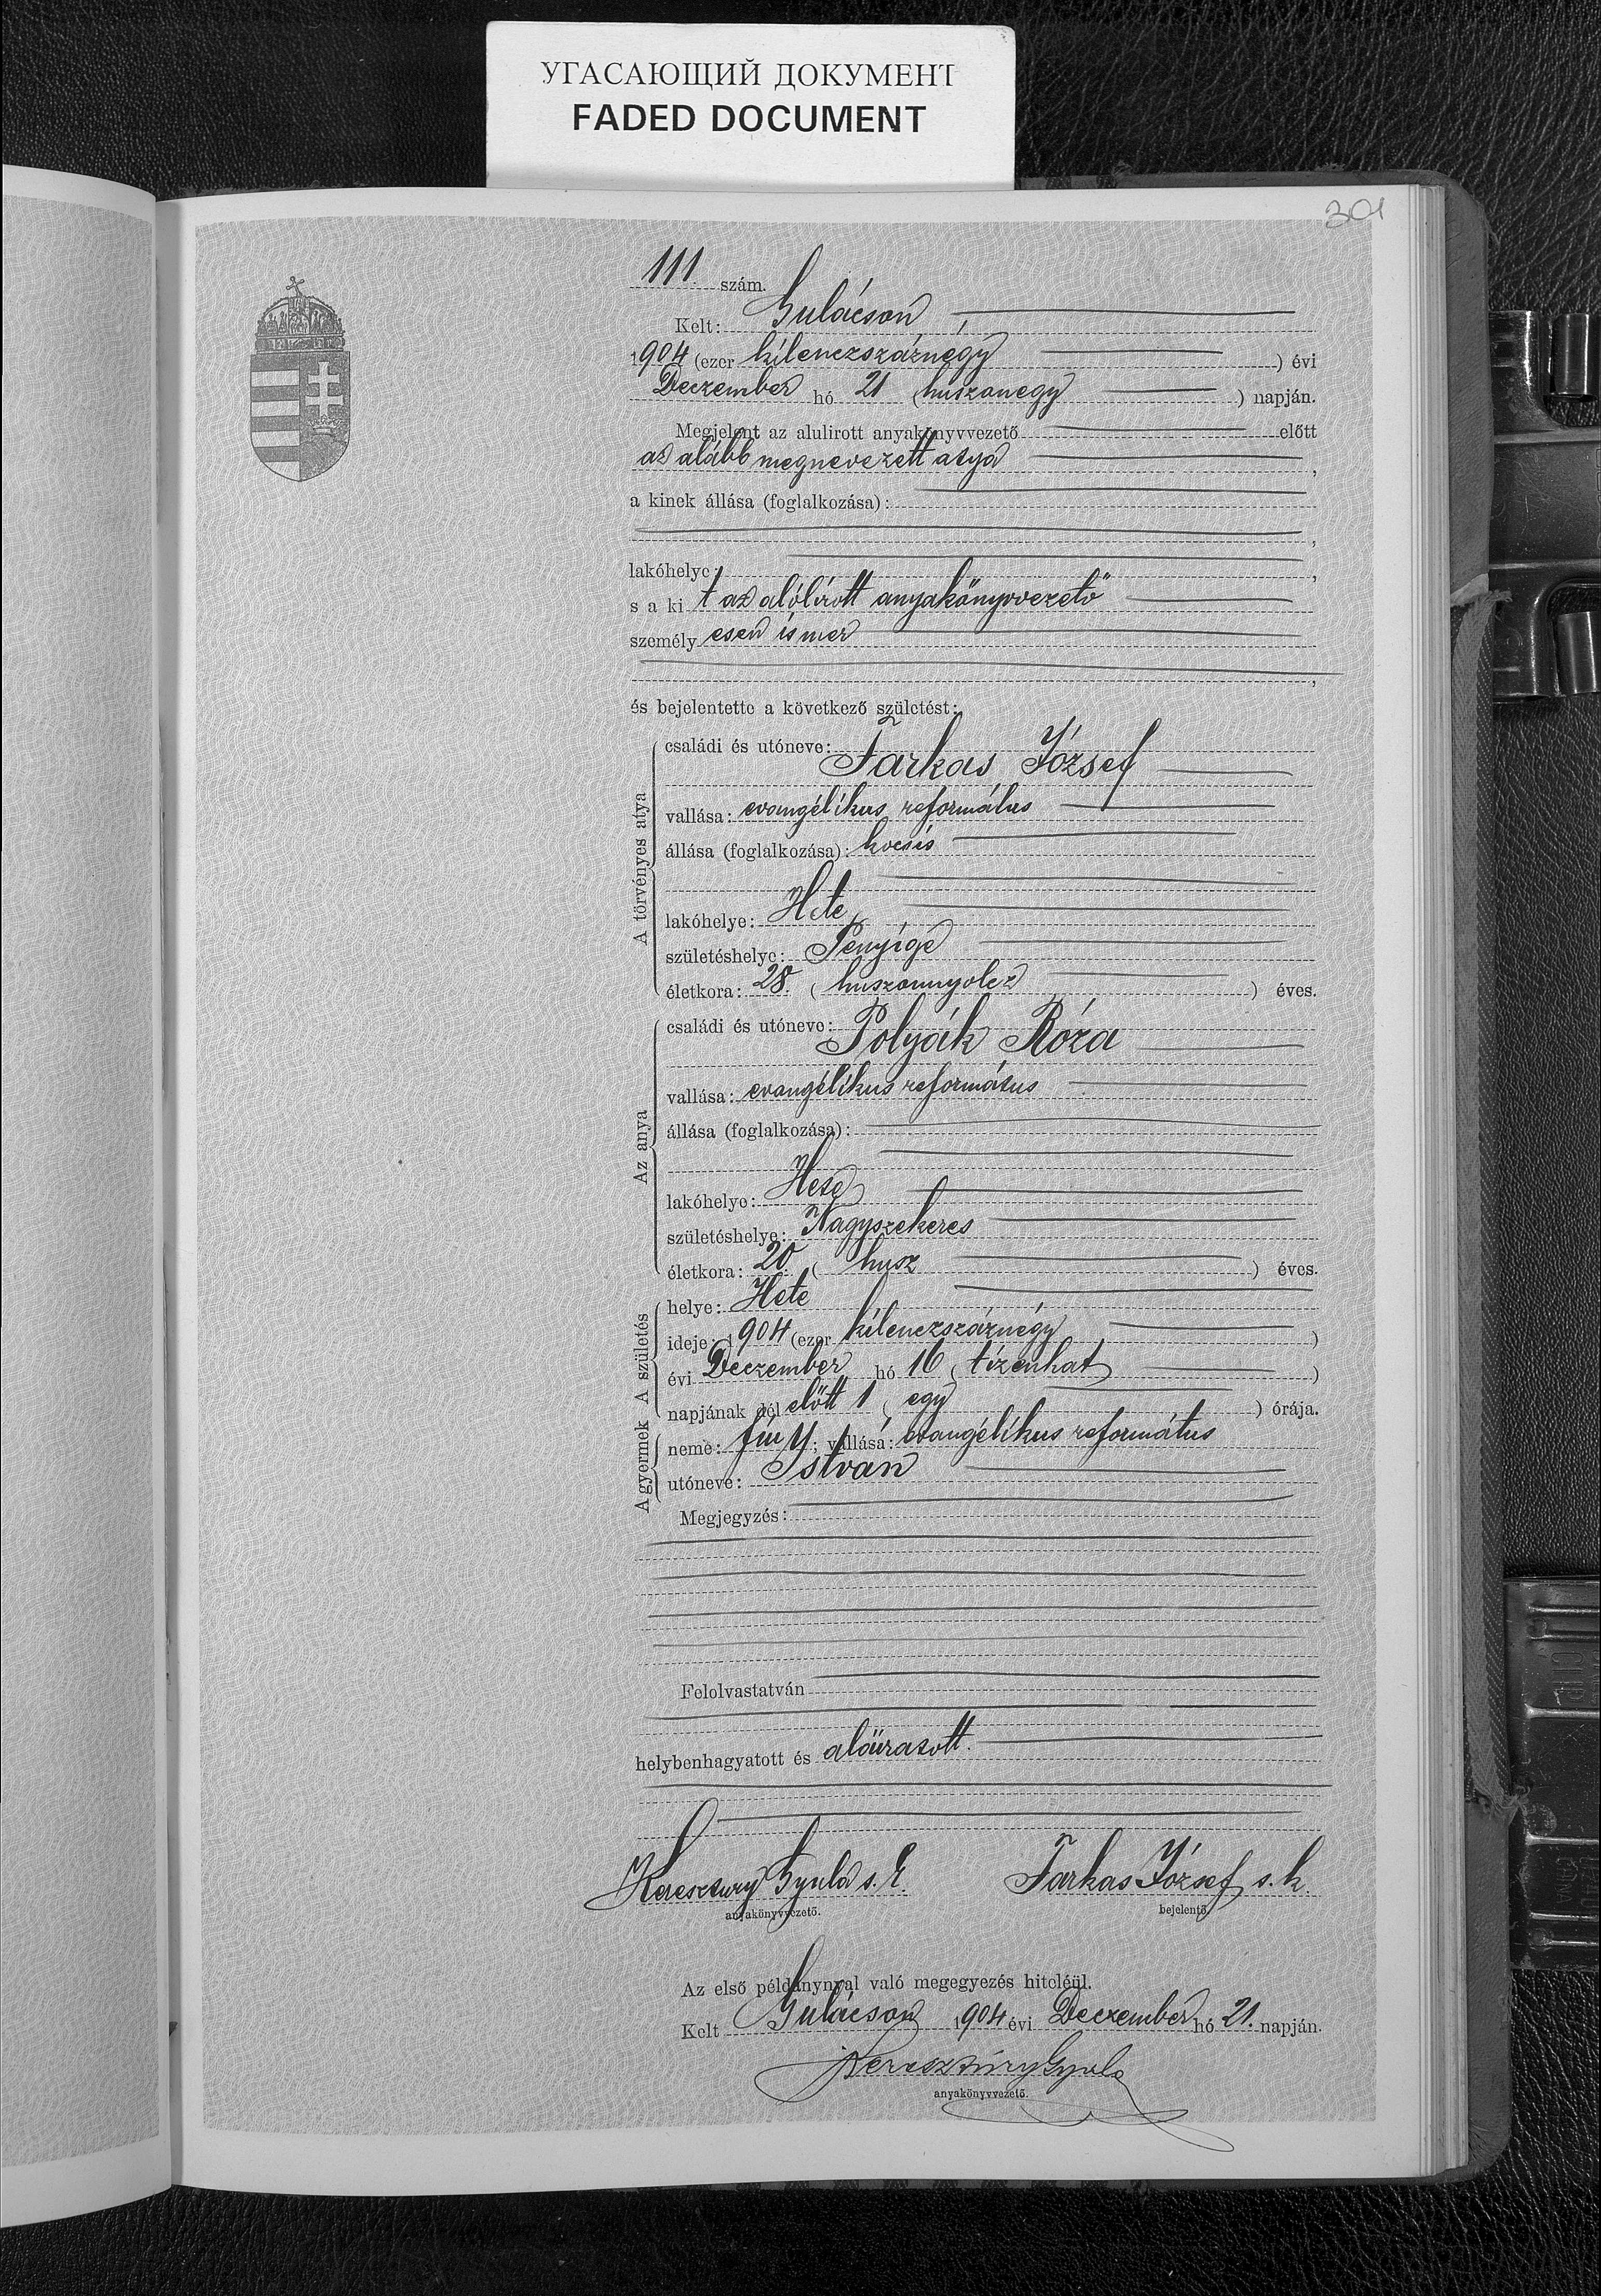 УГАСАЮЩИЙ ДОКУМЕНТ
FADED DOCUMENT
301
111. szám.
Kelt: Gulácson
1904 (ezer kilenczszáznégy) évi
Deczember hó 21 (huszonegy) napján.
Megjelent az alulirott anyakönyvvezető előtt
az alább megnevezett atya,
a kinek állása (foglalkozása):
,
lakóhelye: ,
s a kit az alólirott anyakönyvvezető
személyesen ismer
,
és bejelentette a következő születést:
A törvényes atya
családi és utóneve: Farkas József
vallása: evangélikus református
állása (foglalkozása): kocsis
lakóhelye: Hete
születéshelye: Penyige
életkora: 28. (huszonnyolcz) éves.
Az anya
családi és utóneve: Polyák Róza
vallása: evangélikus református
állása (foglalkozása):
lakóhelye: Hete
születéshelye: Nagyszekeres
életkora: 20. (husz) éves.
A születés
helye: Hete
ideje: 1904 (ezer kilenczszáznégy)
évi Deczember hó 16 (tizenhat)
napjának dél előtt 1 (egy) órája.
A gyermek
neme: fiu; vallása: evangélikus református
utóneve: István
Megjegyzés:
Felolvastatván
helybenhagyatott és aláiratott.
Keresztury Gyula s. k. Farkas József s. k.
anyakönyvvezető. bejelentő.
Az első példánynyal való megegyezés hiteléül.
Kelt Gulácson 1904 évi Deczember hó 21. napján.
Keresztúry Gyula
anyakönyvvezető.